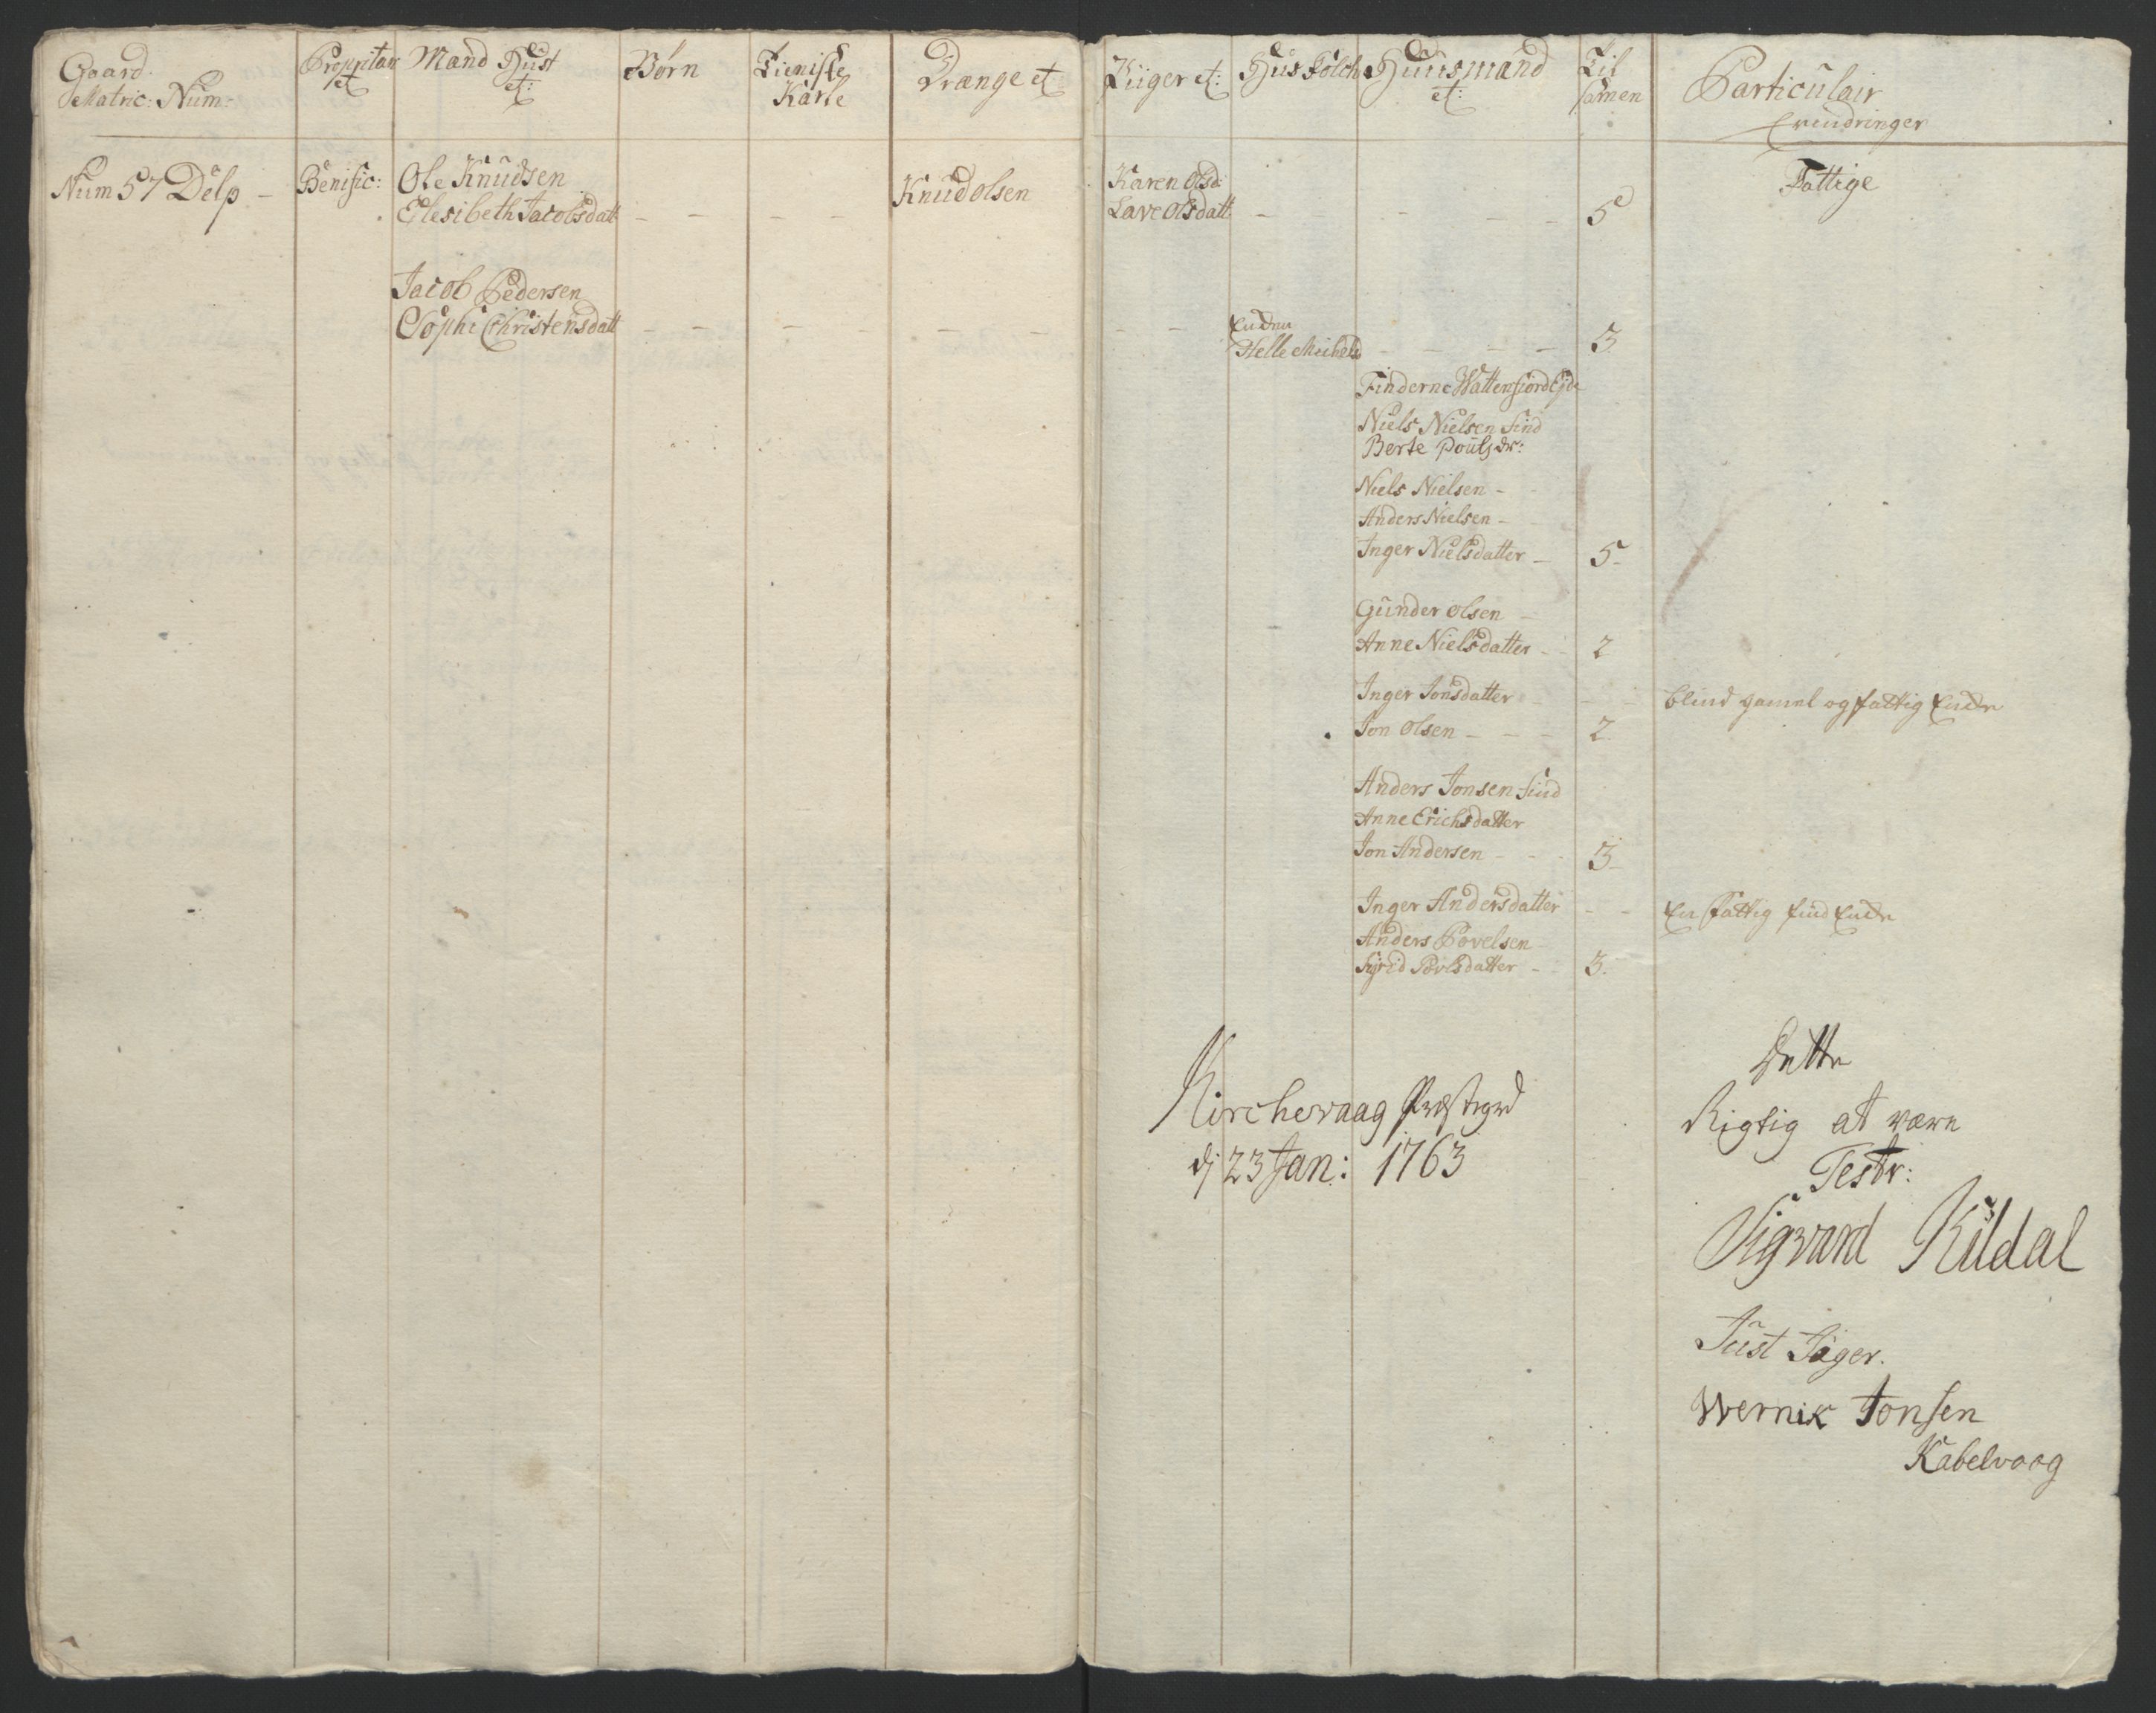 Gaard
Matric: Num:
Propritair
et
Mand Hust
et:
Børn
Tieniste
Karle
Drænge et
Piiger et:
Hus Folch
Huusmænd
et:
Til
samen
Particulair
Erindringer
Num 57 Delp -
Benific:
Ole Knudsen
Elesibeth Jacobsdatt - - - -
Knud olsen
Karen olsd:
Lave olsdatt - - - -
5
Fattige
Jacob Pedersen
Sophi Christensdatt - - - - - - - -
Enden
Helle Michelsd - - - -
3
Finderne Wattenfiord Ejde
Niels Nielsen find
Berte Pouls dr:
Niels Nielsen -
Anders Nielsen -
Inger Nielsdatter - 5
Gunder olsen -
Anne Nielsdatter - 2
Inger Jonsdatter - - - blind gamel og fattig Encke
Jon olsen - - - 2
Anders Jonsen find
Anne Erichsdatter
Jon Andersen - - - 3
Inger Andersdatter - - En fattig find Encke
Anders Povelsen
Sigrid Povlsdatter - - 3.
Kirchevaag Præstegrd
dj 23 Jan: 1763
Dette
Rigtig at være
Testr:
Sigvard Kildal
Just Jäger.
Wernik Jonsen
Kabelvaag